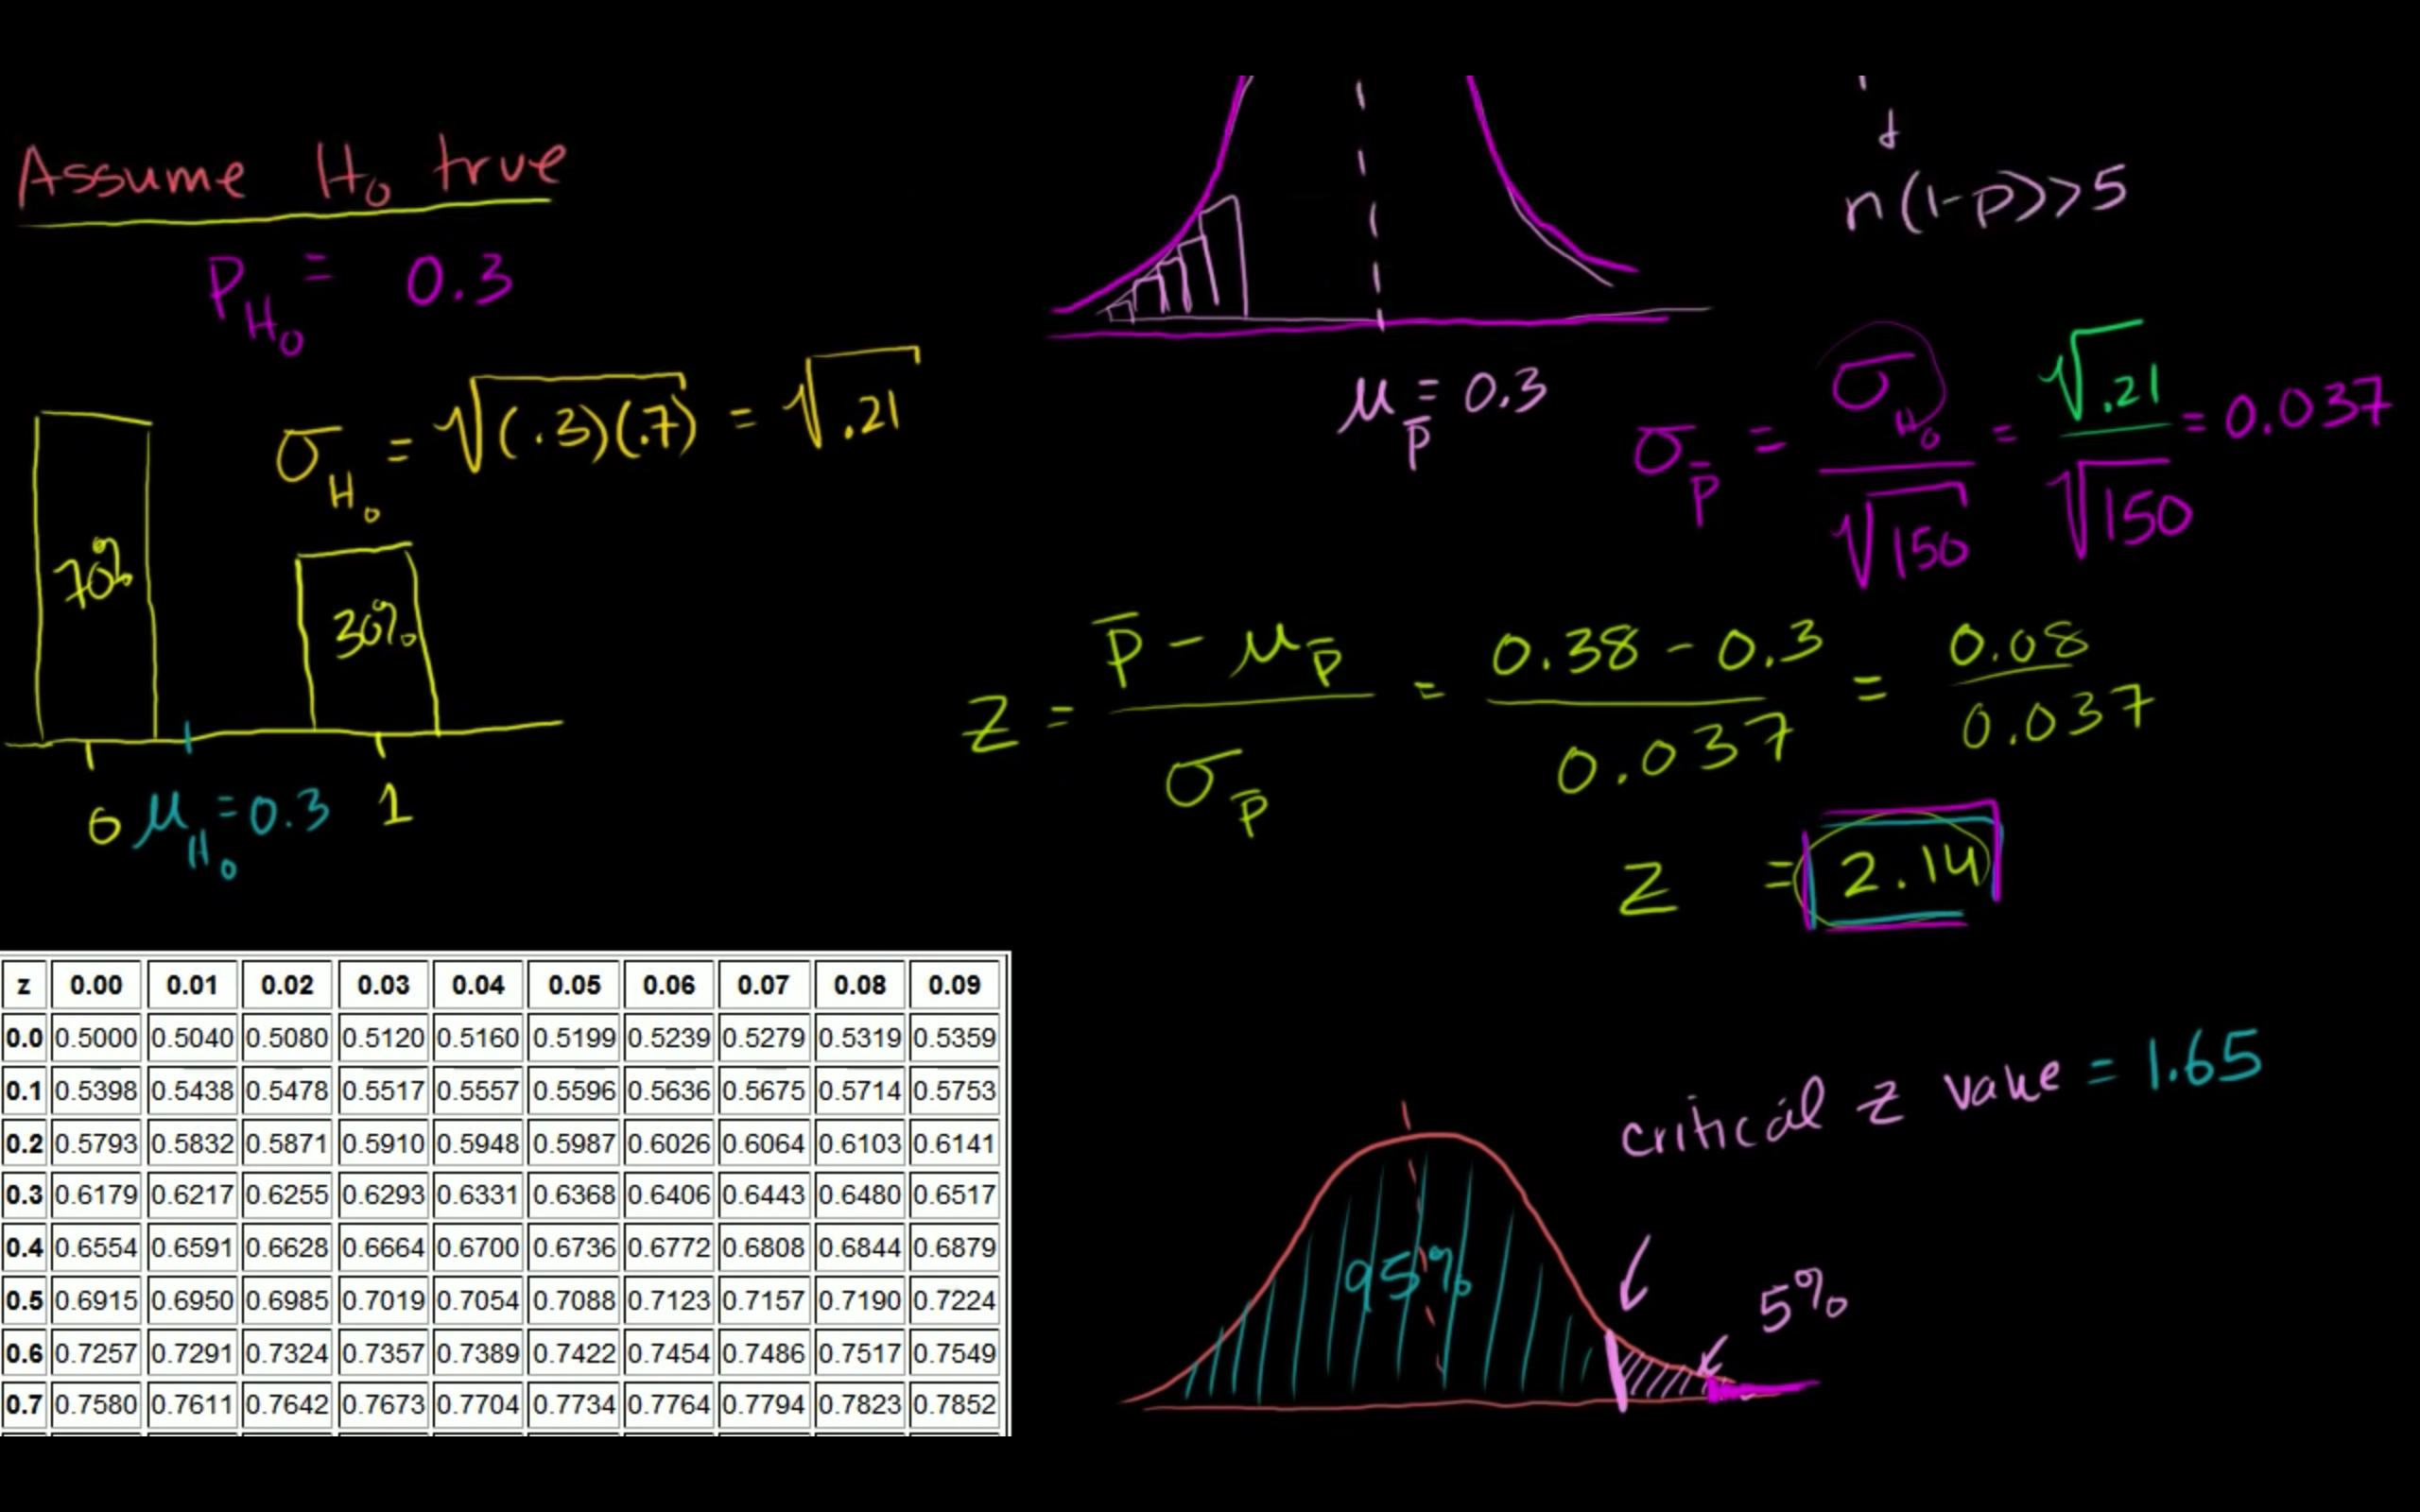 Assume H₀ true
P_H₀ = 0.3
σ_H₀ = √(.3)(.7) = √.21
70%
30%
0 μ_H₀ = 0.3 1
n(1-p)>>5
μ_p̄ = 0.3
σ_p̄ = σ_H₀/√150 = √.21/√150 = 0.037
z = (p̄ - μ_p̄)/σ_p̄ = (0.38 - 0.3)/0.037 = 0.08/0.037
z = 2.14
z 0.00 0.01 0.02 0.03 0.04 0.05 0.06 0.07 0.08 0.09
0.0 0.5000 0.5040 0.5080 0.5120 0.5160 0.5199 0.5239 0.5279 0.5319 0.5359
0.1 0.5398 0.5438 0.5478 0.5517 0.5557 0.5596 0.5636 0.5675 0.5714 0.5753
0.2 0.5793 0.5832 0.5871 0.5910 0.5948 0.5987 0.6026 0.6064 0.6103 0.6141
0.3 0.6179 0.6217 0.6255 0.6293 0.6331 0.6368 0.6406 0.6443 0.6480 0.6517
0.4 0.6554 0.6591 0.6628 0.6664 0.6700 0.6736 0.6772 0.6808 0.6844 0.6879
0.5 0.6915 0.6950 0.6985 0.7019 0.7054 0.7088 0.7123 0.7157 0.7190 0.7224
0.6 0.7257 0.7291 0.7324 0.7357 0.7389 0.7422 0.7454 0.7486 0.7517 0.7549
0.7 0.7580 0.7611 0.7642 0.7673 0.7704 0.7734 0.7764 0.7794 0.7823 0.7852
critical z value = 1.65
95%
5%